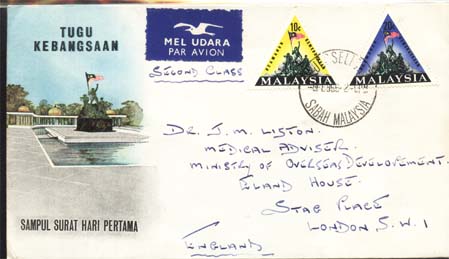 TUGU
KEBANGSAAN
MEL UDARA
PAR AVION
SECOND CLASS
10c
MALAYSIA
MALAYSIA
SABAH MALAYSIA
DR. J. M. LISTON.
MEDICAL ADVISER.
MINISTRY OF OVERSEAS DEVELOPMENT.
ELAND HOUSE.
STAG PLACE
LONDON S.W.1
ENGLAND
SAMPUL SURAT HARI PERTAMA